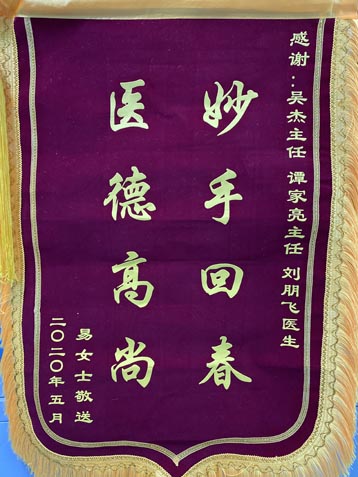 感谢：吴杰主任 谭家亮主任 刘朋飞医生
妙手回春
医德高尚
易女士敬送
二〇二〇年五月